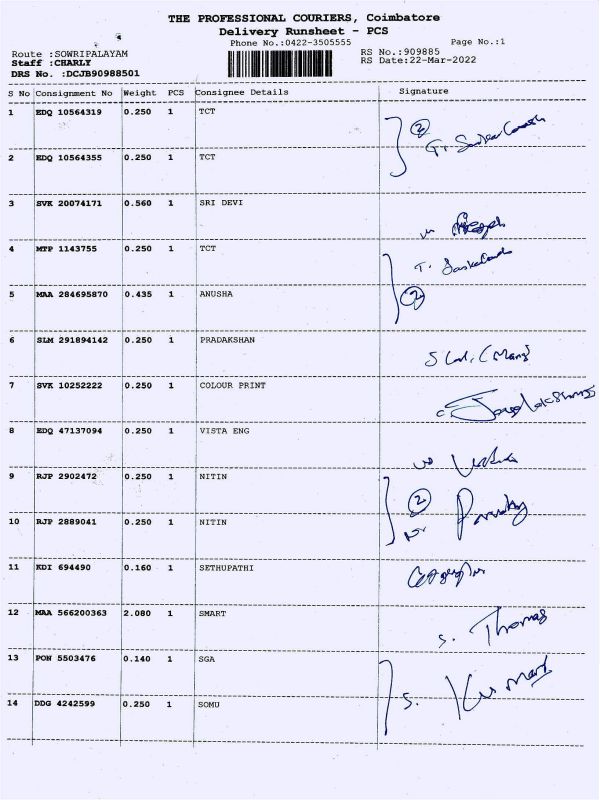 THE PROFESSIONAL COURIERS, Coimbatore
Delivery Runsheet - PCS
Phone No.:0422-3505555 Page No.:1
Route :SOWRIPALAYAM RS No.:909885
Staff :CHARLY RS Date:22-Mar-2022
DRS No. :DCJB90988501
S No Consignment No Weight PCS Consignee Details Signature
1 EDQ 10564319 0.250 1 TCT
2
2 EDQ 10564355 0.250 1 TCT
3 SVK 20074171 0.560 1 SRI DEVI
4 MTP 1143755 0.250 1 TCT
5 MAA 284695870 0.435 1 ANUSHA
2
6 SLM 291894142 0.250 1 PRADAKSHAN
7 SVK 10252222 0.250 1 COLOUR PRINT
8 EDQ 47137094 0.250 1 VISTA ENG
9 RJP 2902472 0.250 1 NITIN
2
10 RJP 2889041 0.250 1 NITIN
11 KDI 694490 0.160 1 SETHUPATHI
12 MAA 566200363 2.080 1 SMART
S. Thomas
13 PON 5503476 0.140 1 SGA
14 DDG 4242599 0.250 1 SOMU